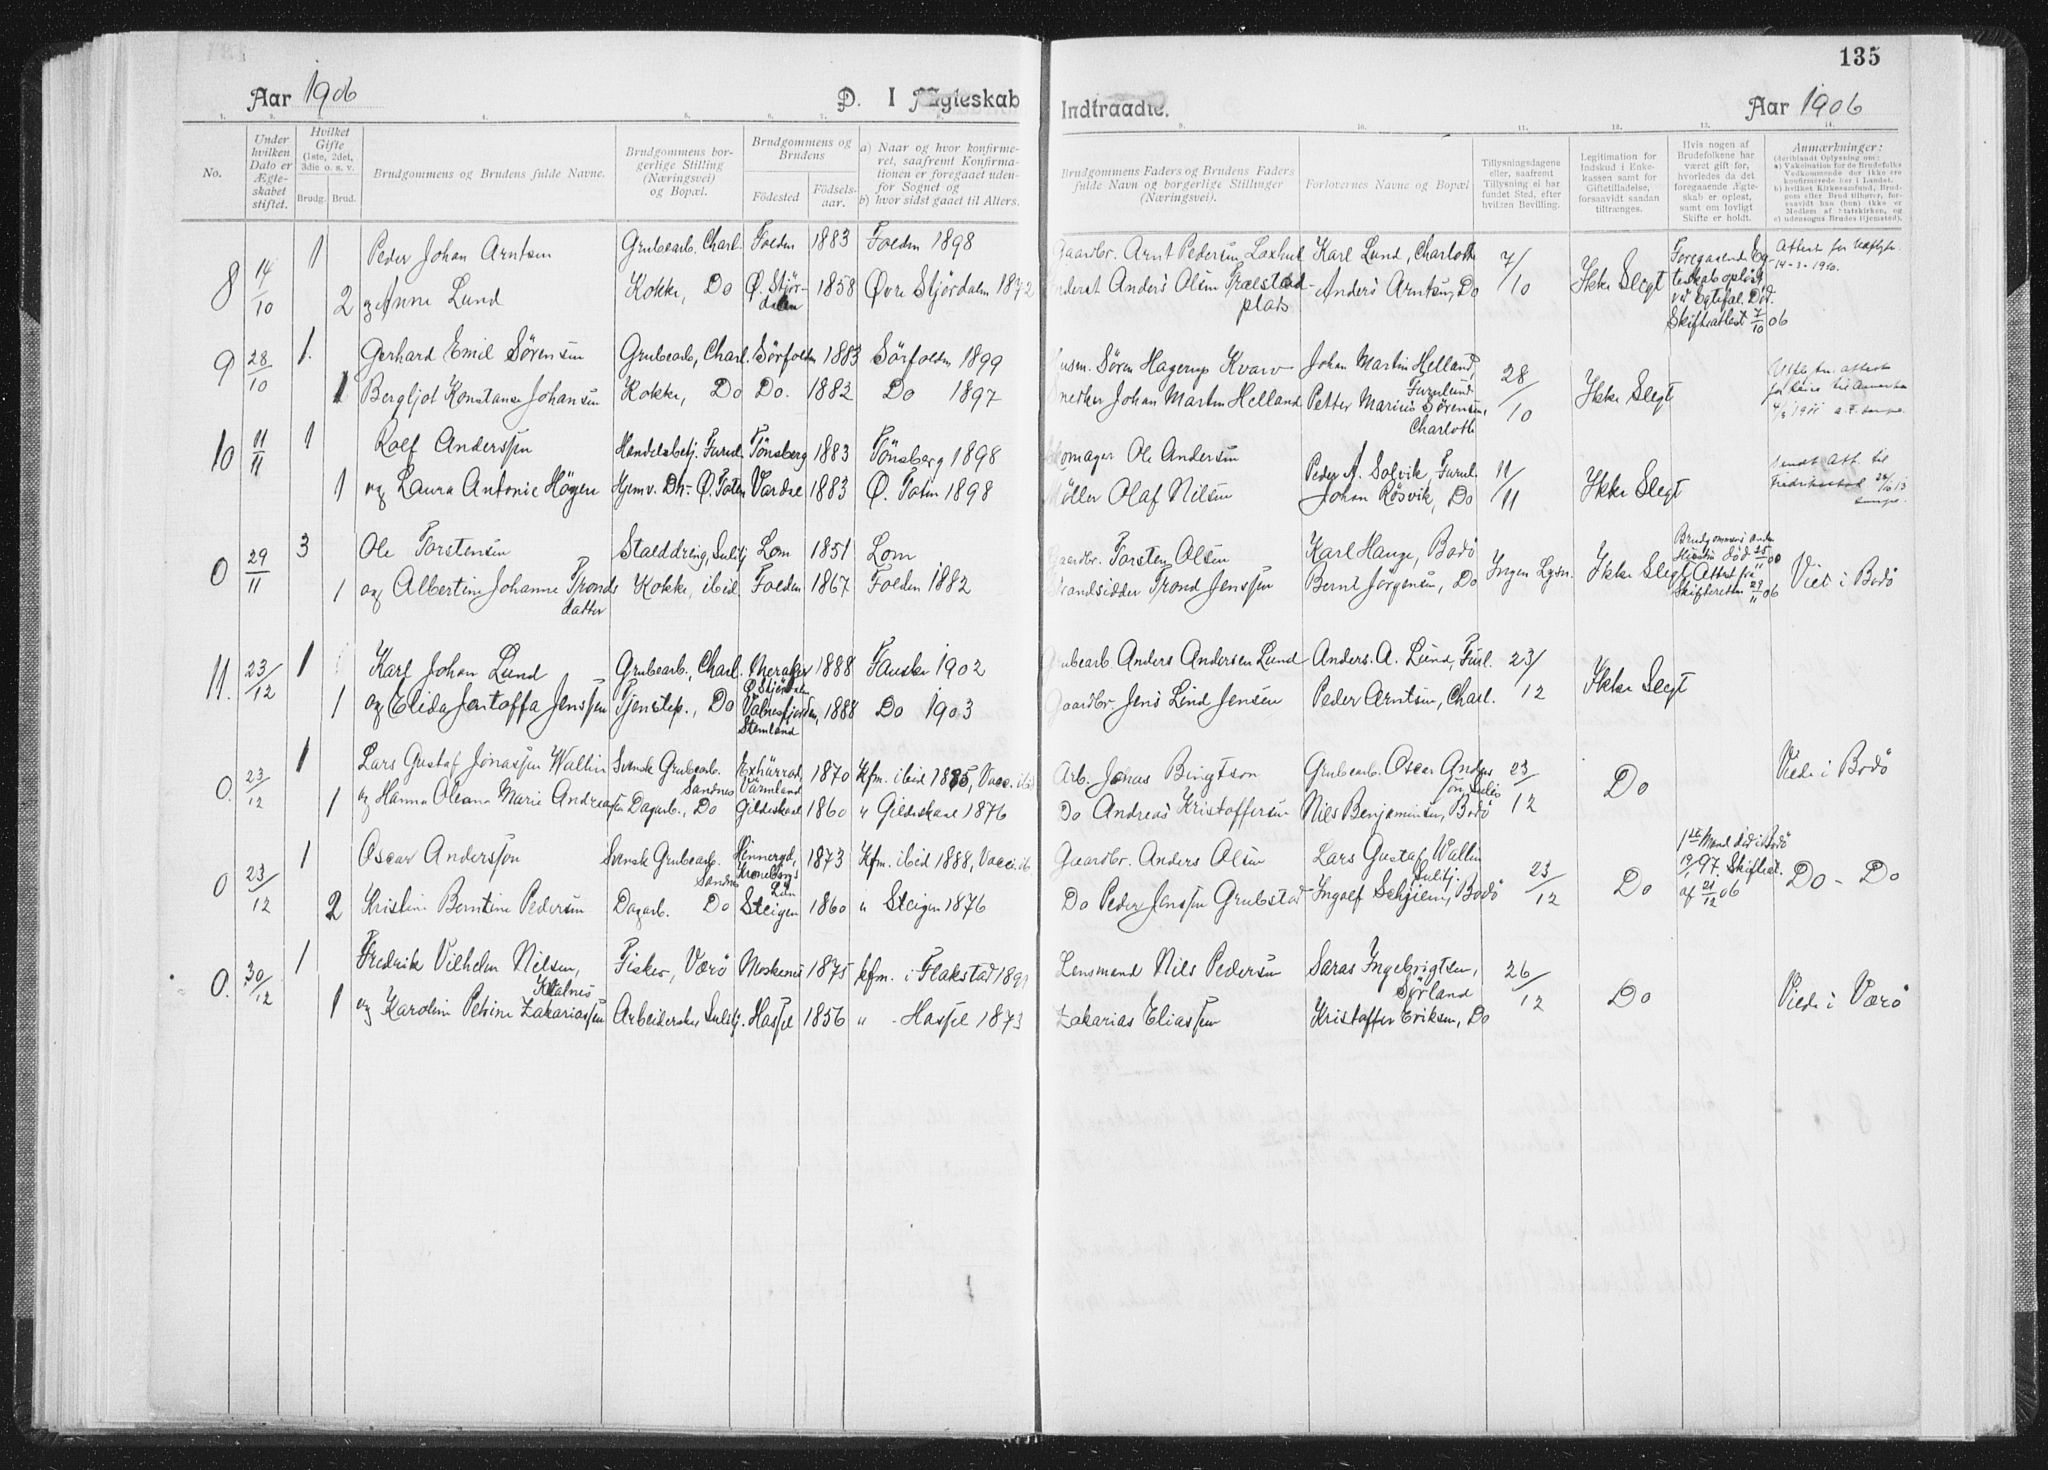 135
Aar 1906
D. I Ægteskab
Indtraadte.
Aar 1906
1. 2. 3. 4. 5. 6. 7. 8. 9. 10. 11. 12. 13. 14.
No.
Under hvilken Dato er Ægteskabet stiftet.
Hvilket Gifte (1ste, 2det, 3die o. s. v.
Brudg. Brud.
Brudgommens og Brudens fulde Navne.
Brudgommens borgerlige Stilling (Næringsvei) og Bopæl.
Brudgommens og Brudens
Fødested
Fødselsaar.
a) Naar og hvor konfirmeret, saafremt Konfirmationen er foregaaet udenfor Sognet og
b) hvor sidst gaaet til Alters.
Brudgommens Faders og Brudens Faders fulde Navn og borgerlige Stillinger (Næringsvei).
Forlovernes Navne og Bopæl
Tillysningsdagene eller, saafremt Tillysning ei har fundet Sted, efter hvilken Bevilling.
Legitimation for Indskud i Enkekassen samt for Giftetilladelse, forsaavidt saadan tiltrænges.
Hvis nogen af Brudefolkene har været gift før, hvorledes da det foregaaende Ægteskab er opløst, samt om lovligt Skifte er holdt.
Anmærkninger:
(deriblandt Oplysning om:
a) Vakcination for de Brudefolks Vedkommende der ikke ere konfirmerede her i Landet.
b) hvilket Kirkesamfund, Brudgom eller Brud tilhører, forsaavidt han (hun) ikke er Medlem af Statskirken, og
c) udensogns Brudes Hjemsted).
8 14/10 1 Peder Johan Arntsen Grubearb. Charl. Folden 1883 Folden 1898 Gaardbr. Arnt Pedersen Laxhul Karl Lund, Charlotte 7/10 Ikke Slegt Foregaaende Egteskab opløst ved Egtefæl. Död. Skifteattest 7/10 06 Attest for 14-3-1910.
2 og Anne Lund Kokke, Do Ø. Stjördalen 1858 Øvre Stjördalen 1872 Anders Olsen Trælstadplads Anders Arntsen, Do
9 28/10 1. Gerhard Emil Sörensen Grubearb, Charl. Sörfolden 1883 Sörfolden 1899 Husm. Sören Hagerup Kvarv Johan Martin Helland, Furulund 28/10 Ikke Slegt
1 Bergljot Konstanse Johansen Kokke, Do Do. 1882 Do 1897 Snedker Johan Martin Helland Petter Marius Sörensen, Charlotte
10 11/11 1 Rolf Anderssen Handelsbetj. Furul. Tönsberg 1883 Tönsberg 1898 Skomager Ole Andersen Peder A. Solvik, Furul. 11/11 Ikke Slegt Sendt Att. til Fredrikstad
1 og Laura Antonie Högen Hjemv. Dtr. Ø. Toten Vardöe 1883 Ø. Toten 1898 Möller Olaf Nilsen Johan Rösvik, Do
0 29/11 3 Ole Torstensen Stalddreng, Sulitj. Lom 1851 Lom Gaardbr. Torsten Olsen Karl Hauge, Bodö Ingen Lysn. Ikke Slegt Brudgommens anden Hustru död 25/11 00 Attest fra Skifteretten 29/11 06 Viet i Bodö
1 og Albertine Johanne Trondsdatter Kokke, ibid Folden 1867 Folden 1882 Strandsidder Trond Jenssen Bernt Jörgensen, Do
11. 23/12 1 Karl Johan Lund Grubearb., Charl. Meraker Ø. Stjördalen 1888 Fauske 1902 Grubearb. Anders Andersen Lund Anders. A. Lund, Furl. 23/12 Ikke Slegt
1 og Elida Jentoffa Jenssen Tjenstep., Do Valnesfjorden, Stemland 1888 Do 1903 Gaardbr. Jens Lind Jensen Peder Arntsen, Charl.
0. 23/12 1 Lars Gustaf Jonassen Wallin Svensk Grubearb. Sandnes Exhärrad, Värmland 1870 Kfm. ibid 1885, Vacc. ibd Arb. Jonas Bingtson Grubearb. Oscar Andersson, Sulis 23/12 Do Viede i Bodö
1 og Hanna Oleana Marie Andreassen Dagarb., Do Gildeskaal 1860 " Gildeskaal 1876 Do Andreas Kristoffersen Nils Benjaminsen, Bodö
0 23/12 1 Oscar Anderssen Svensk Grubearb. Sandnes Hinneryd, Kronobergs Län 1873 Kfm. ibid 1888, Vacc. ib. Gaardbr. Anders Olsen Lars Gustaf Wallin Sulitj. 23/12 Do 1ste Mand död i Bodö 19/1 97. Skifteat. af 21/12 06 Do - Do
2 Kristine Berntine Pedersen Dagarb. Do Steigen 1860 " Steigen 1876 Do Peder Jenssen Grubstad Ingolf Schjelm, Bodö
0. 30/12 1 Fredrik Vilhelm Nilsen, Kvalnes Fisker, Værö Moskenes 1875 kfm. i Flakstad 1891 Lensmand Nils Pedersen Saras Ingebrigtsen, Sörland 26/12 Do Viede i Værö
1 og Karoline Petrine Zakariassen Arbeiderske Sulitj. Hassel 1856 " Hassel 1873 Zakarias Eliassen Kristoffer Eriksen, Do